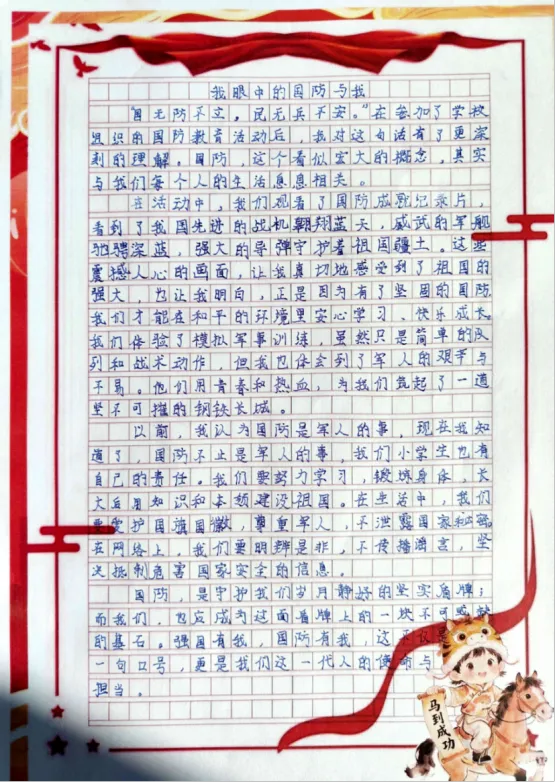 我眼中的国防与我
"国无防不立，民无兵不安。"在参加了学校
组织的国防教育活动后，我对这句话有了更深
刻的理解。国防，这个看似宏大的概念，其实
与我们每个人的生活息息相关。
在活动中，我们观看了国防成就纪录片，
看到了我国先进的战机翱翔蓝天，威武的军舰
驰骋深蓝，强大的导弹守护着祖国疆土。这些
震撼人心的画面，让我真切地感受到了祖国的
强大，也让我明白，正是因为有了坚固的国防，
我们才能在和平的环境里安心学习、快乐成长。
我们体验了模拟军事训练，虽然只是简单的队
列和战术动作，但我也体会到了军人的艰辛与
不易。他们用青春和热血，为我们筑起了一道
坚不可摧的钢铁长城。
以前，我认为国防是军人的事，现在我知
道了，国防不止是军人的事，我们小学生也有
自己的责任。我们要努力学习，锻炼身体，长
大后用知识和本领建设祖国。在生活中，我们
要爱护国旗国徽，尊重军人，不泄露国家秘密。
在网络上，我们要明辨是非，不传播谣言，坚
决抵制危害国家安全的信息。
国防，是守护我们岁月静好的坚实盾牌；
而我们，也应成为这面盾牌上的一块不可或缺
的基石。强国有我，国防有我，这不仅是
一句口号，更是我们这一代人的使命与
担当。
马到成功